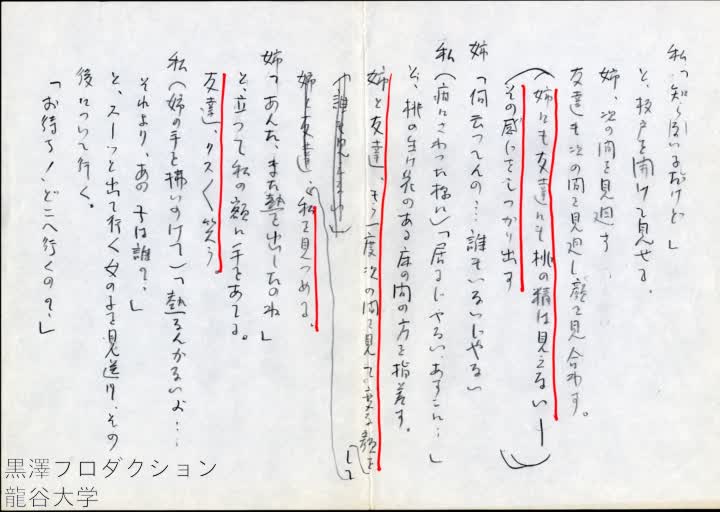 私「知らないけど」
と、板戸を開けて見せる。
姉、次の間を見廻す
友達も次の間を見廻し、顔を見合わす。
(姉にも友達にも桃の精は見えない ―
その感じをしっかり出す)
姉「何云ってんの…誰もいないじゃない
私(癪にさわった様に)「居るじゃない、あすこに…」
と、桃の生け花のある床の間の方を指差す。
姉と友達、もう一度次の間を見て変な顔をして
(誰も見えない)
姉と友達、私を見つめる。
姉「あんた、また熱を出したのね」
と、立って私の額に手をあてる。
友達、クスクス笑う。
私(姉の手を払いのけて)「熱なんかないよ…
それより、あの子は誰?」
と、スーッと出て行く女の子を見送り、その
後について行く。
「お待ち!どこへ行くの?」
黒澤プロダクション
龍谷大学